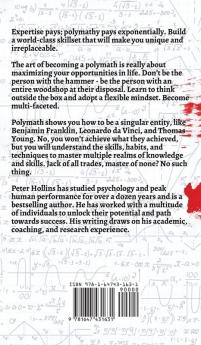 Expertise pays; polymathy pays exponentially. Build
a world-class skillset that will make you unique and
irreplaceable.
The art of becoming a polymath is really about
maximizing your opportunities in life. Don't be the
person with the hammer - be the person with an
entire woodshop at their disposal. Learn to think
outside the box and adopt a flexible mindset. Become
multi-faceted.
Polymath shows you how to be a singular entity, like
Benjamin Franklin, Leonardo da Vinci, and Thomas
Young. No, you won't achieve what they achieved,
but you will understand the skills, habits, and
techniques to master multiple realms of knowledge
and skills. Jack of all trades, master of none? No such
thing.
Peter Hollins has studied psychology and peak
human performance for over a dozen years and is a
bestselling author. He has worked with a multitude
of individuals to unlock their potential and path
towards success. His writing draws on his academic,
coaching, and research experience.
ISBN 978-1-64743-163-1
90000
9 781647 431631